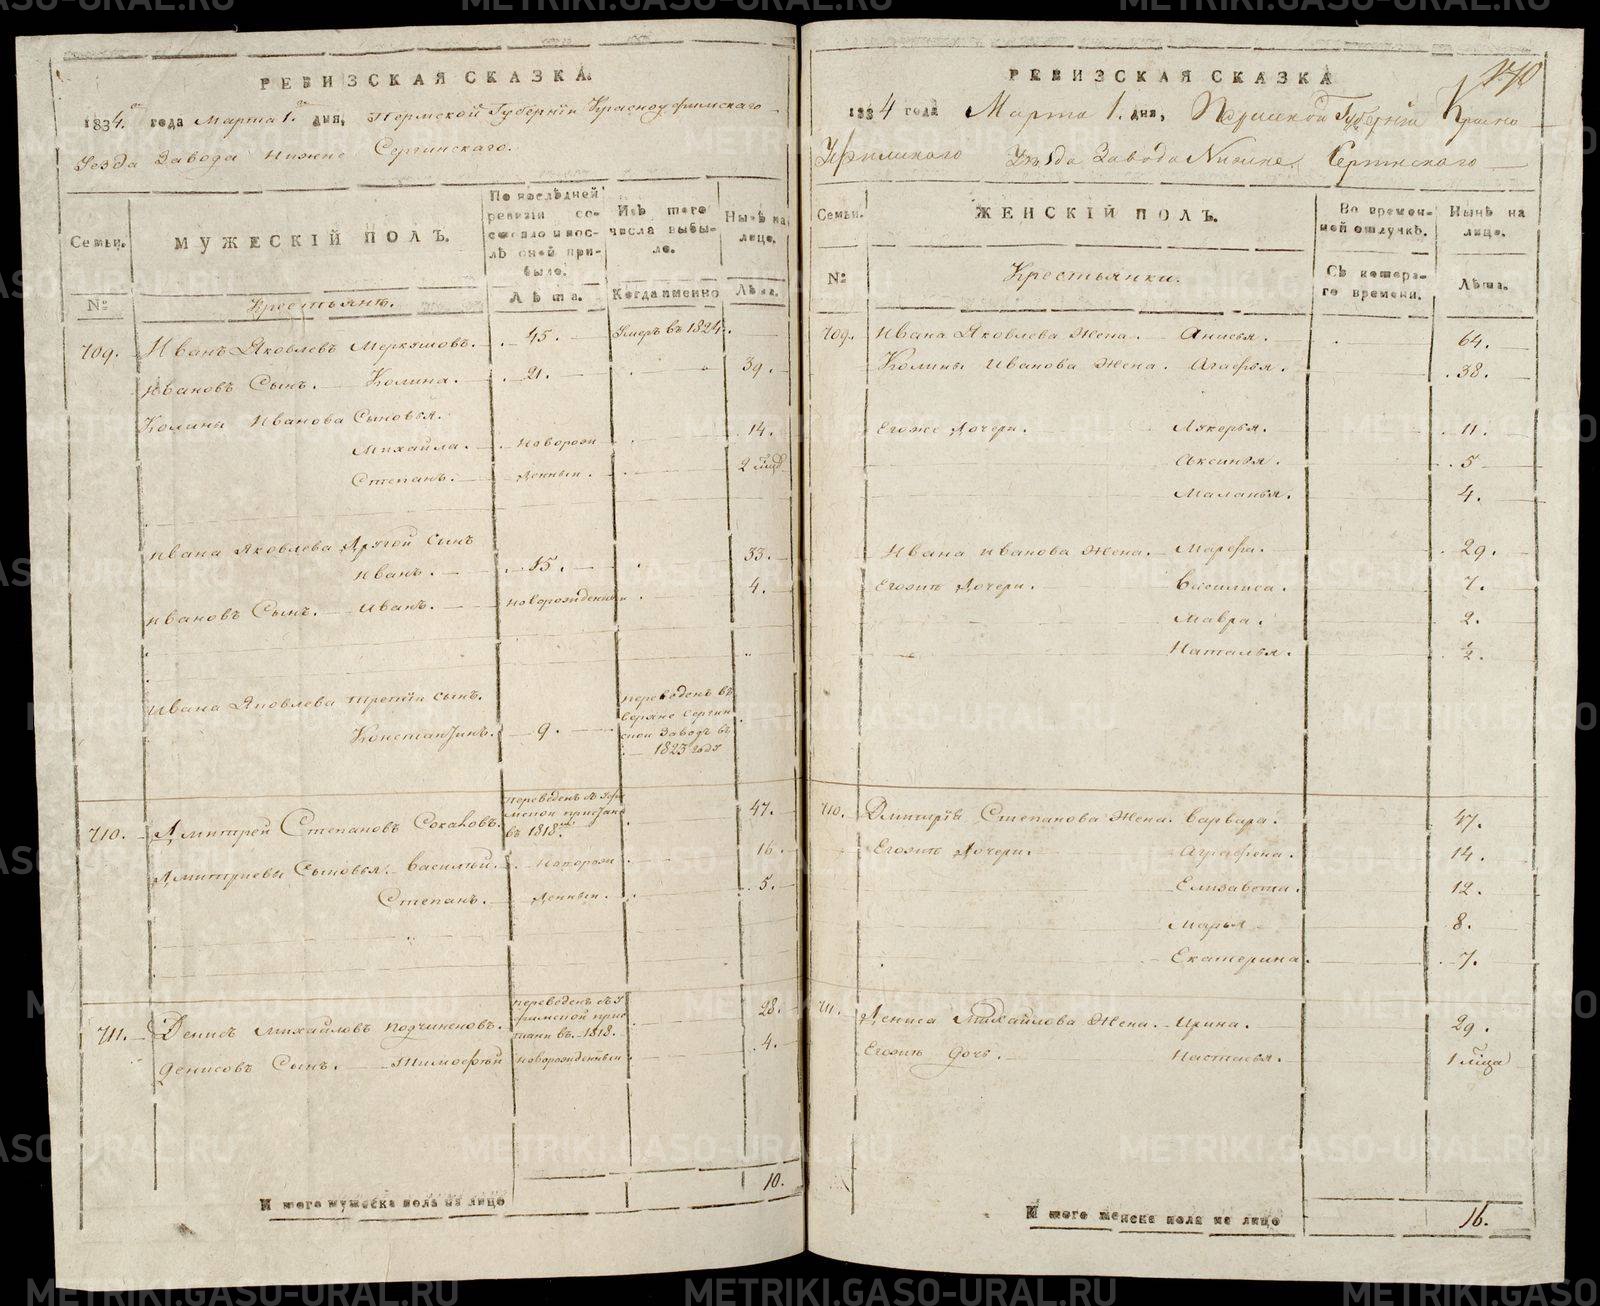 РЕВИЗСКАЯ СКАЗКА.
1834. года Марта 1. дня, Пермской Губернїи Красноуфимскаго
Уезда Завода Нижне Сергинскаго.
Семьи.
МУЖЕСКІЙ ПОЛЪ.
По послѣдней ревизіи состояло и послѣ оной прибыло.
Изъ того числа выбыло.
Нынѣ на лицо.
№
Крестьянъ.
Лѣта.
Когда именно
Лѣта.
709. Иванъ Яковлевъ Меркушовъ. 45. Умеръ въ 1824.
Ивановъ Сынъ. Колина. 21. 39.
Колины Иванова Сыновья.
Михайла. Новорож 14.
Степанъ. денныи. 2 мца
Ивана Яковлева Другой сынъ
Иванъ. 15. 33.
Ивановъ Сынъ. Иванъ. Новорожденныи 4.
Ивана Яковлева третїй сынъ.
Константинъ. 9. переведенъ въ верхне Сергинской Заводъ въ 1823 году
710. Дмитрей Степановъ Соколовъ. переведенъ въ 1818 47.
Дмитриевы Сыновья. Василий. Новорож 16.
Степанъ. денныи. 5.
711. Денисъ Михайловъ Подчиненовъ. переведенъ пристани въ 1818. 28.
Денисовъ Сынъ. Тимофей новорожденныи 4.
Итого мужеска пола на лицо 10.
270
РЕВИЗСКАЯ СКАЗКА
1834 года Марта 1. дня, Пермской Губернїи Красно
Уфимскаго Уѣзда Завода Нижне Сергинскаго
Семьи.
ЖЕНСКІЙ ПОЛЪ.
Во временной отлучкѣ.
Нынѣ на лицо.
№
Крестьянки.
Съ котораго времени.
Лѣта.
709. Ивана Яковлева жена. Анисья. 64.
Колины Иванова жена. Агафья. 38.
Егоже дочери. Лукерья. 11.
Аксинья. 5
Маланья. 4.
Ивана Иванова жена. Марфа. 29.
Егожъ дочери. Василиса. 7.
Мавра. 2.
Наталья. ½.
710. Дмитрїя Степанова жена. Варвара. 47.
Егожъ дочери. Аграфена. 14.
Елизавета. 12.
Марья 8.
Екатерина. 7.
711. Дениса Михайлова жена. Ирина. 29.
Егожъ дочь. Настасья. 1 мца
Итого женска пола на лицо 16.
METRIKI.GASO-URAL.RU